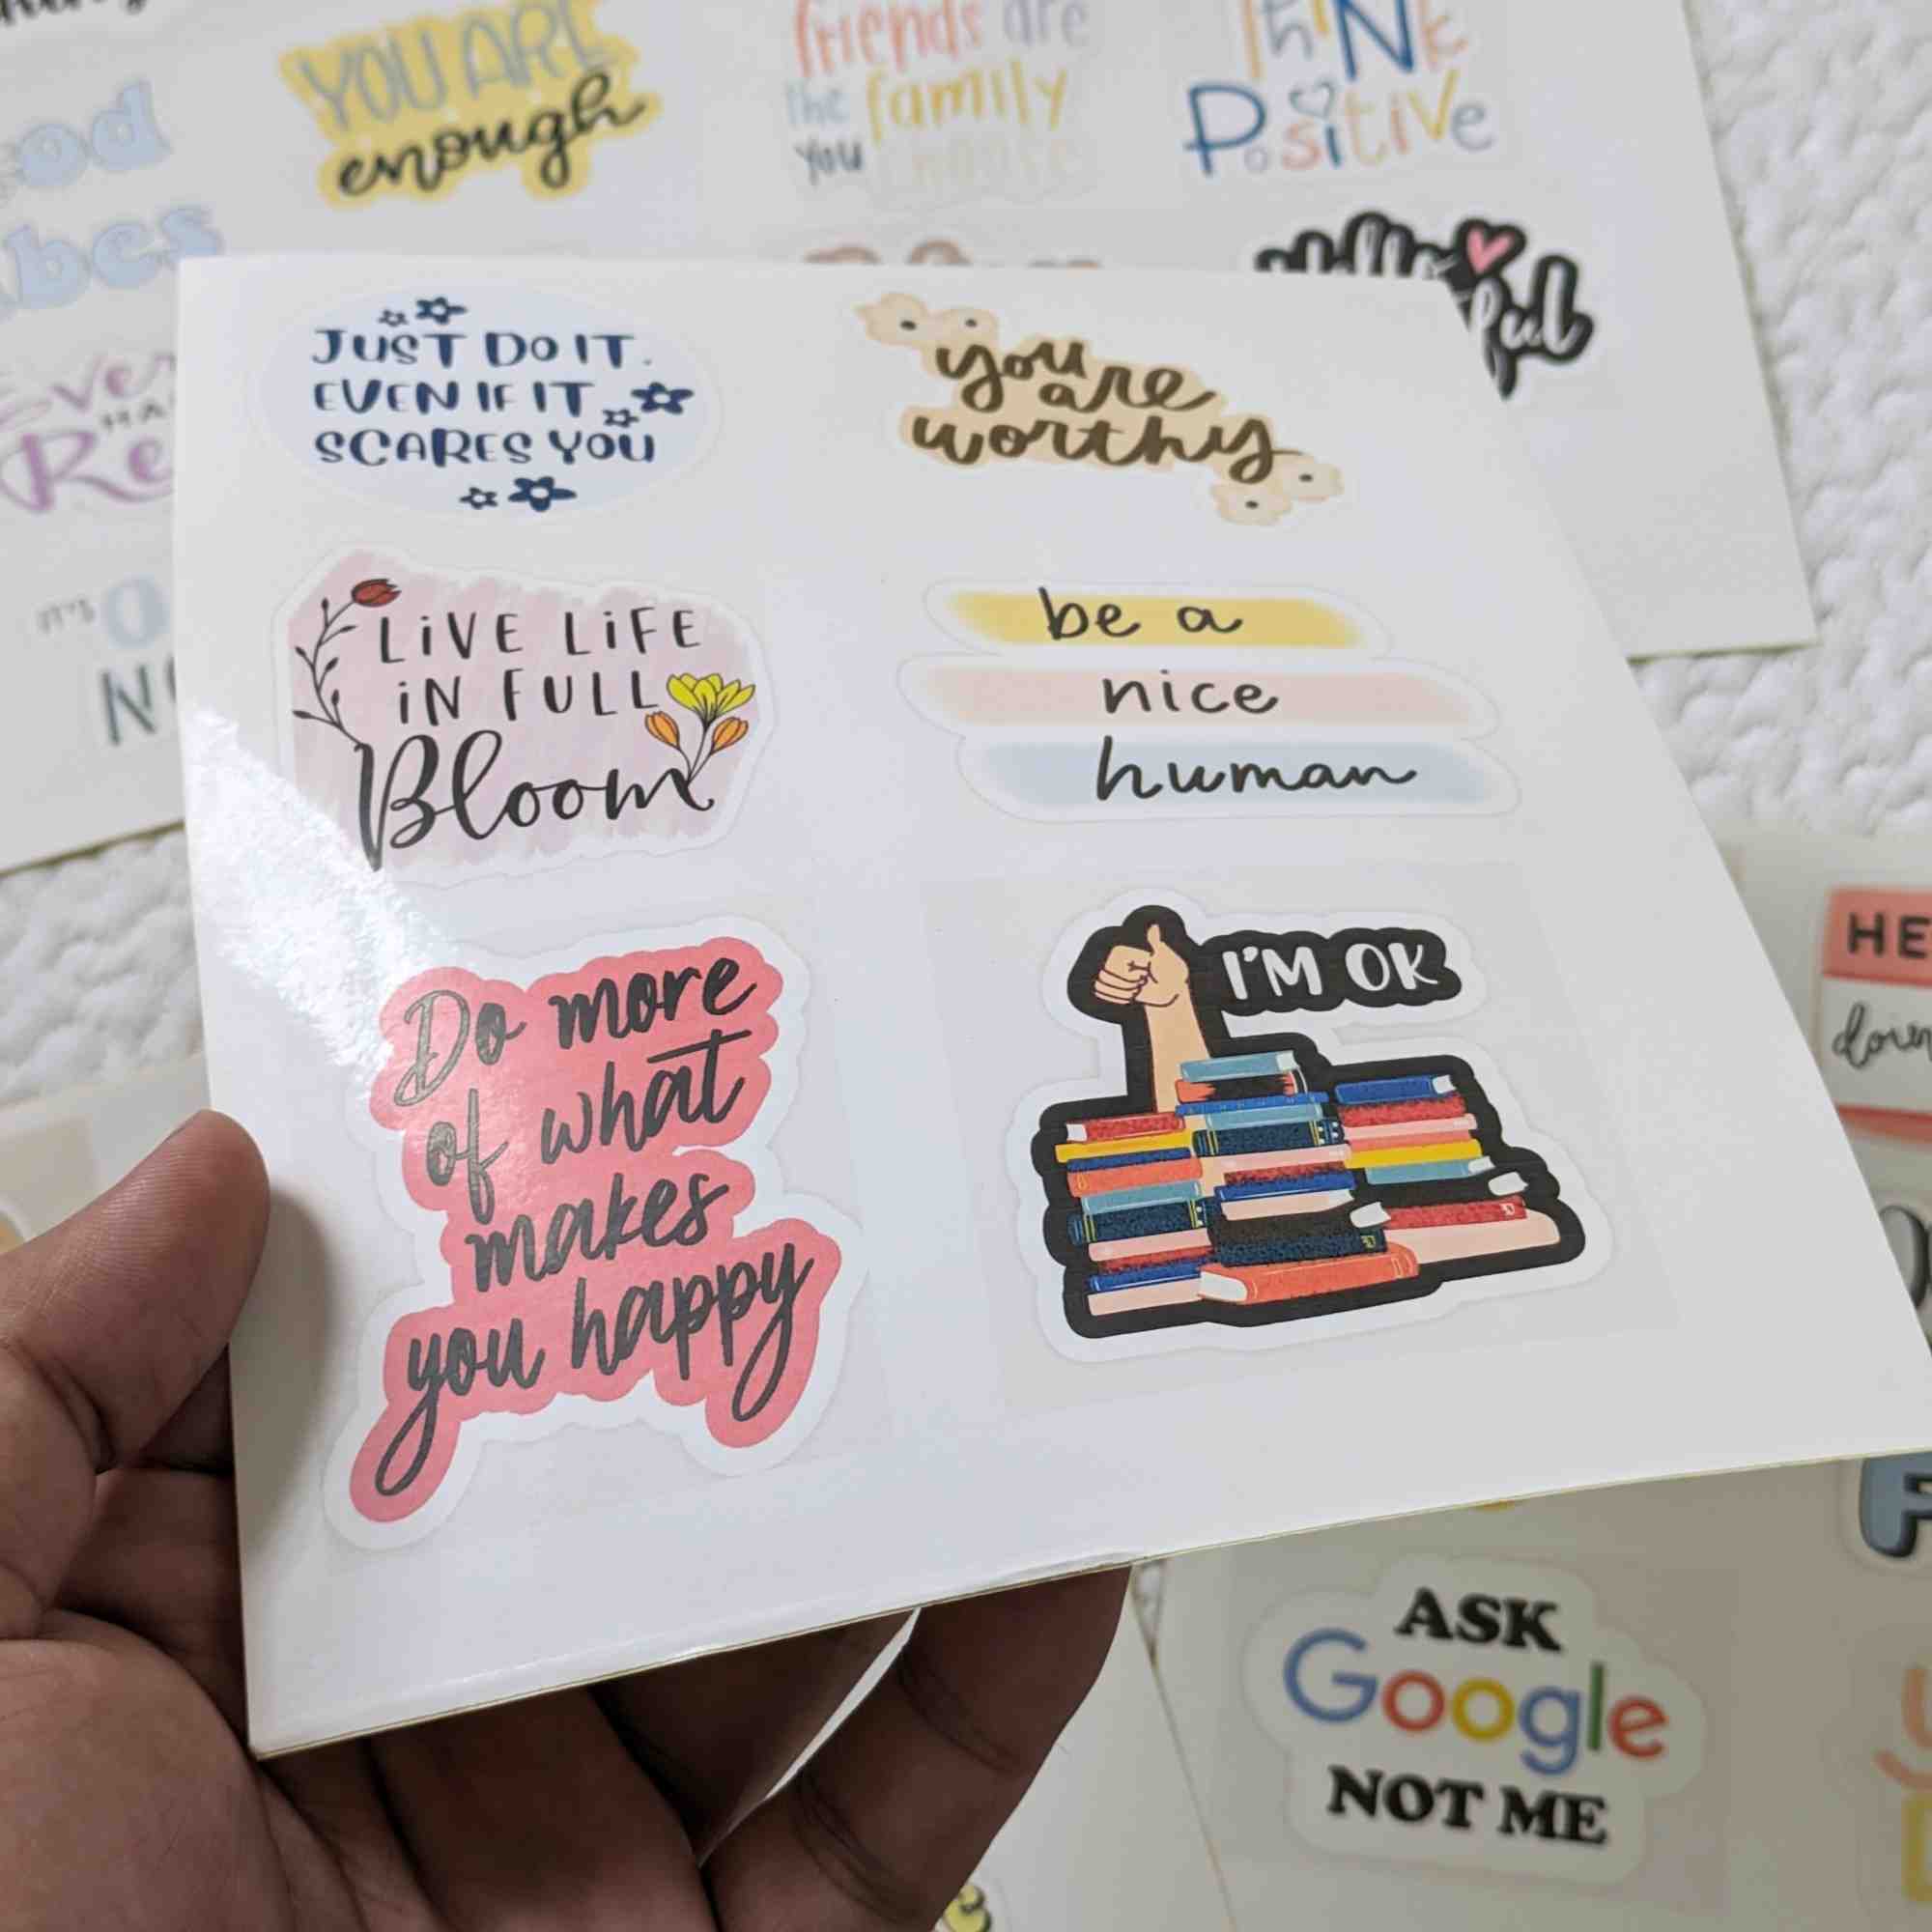 YOU ARE
enough
friends are
the family
you choose
ThiNk
Positive
JUST DO IT.
EVEN IF IT
SCARES YOU
you
are
worthy
LiVE LiFE
iN FULL
Bloom
be a
nice
human
Do more
of what
makes
you happy
I'M OK
IT'S
ASK
Google
NOT ME